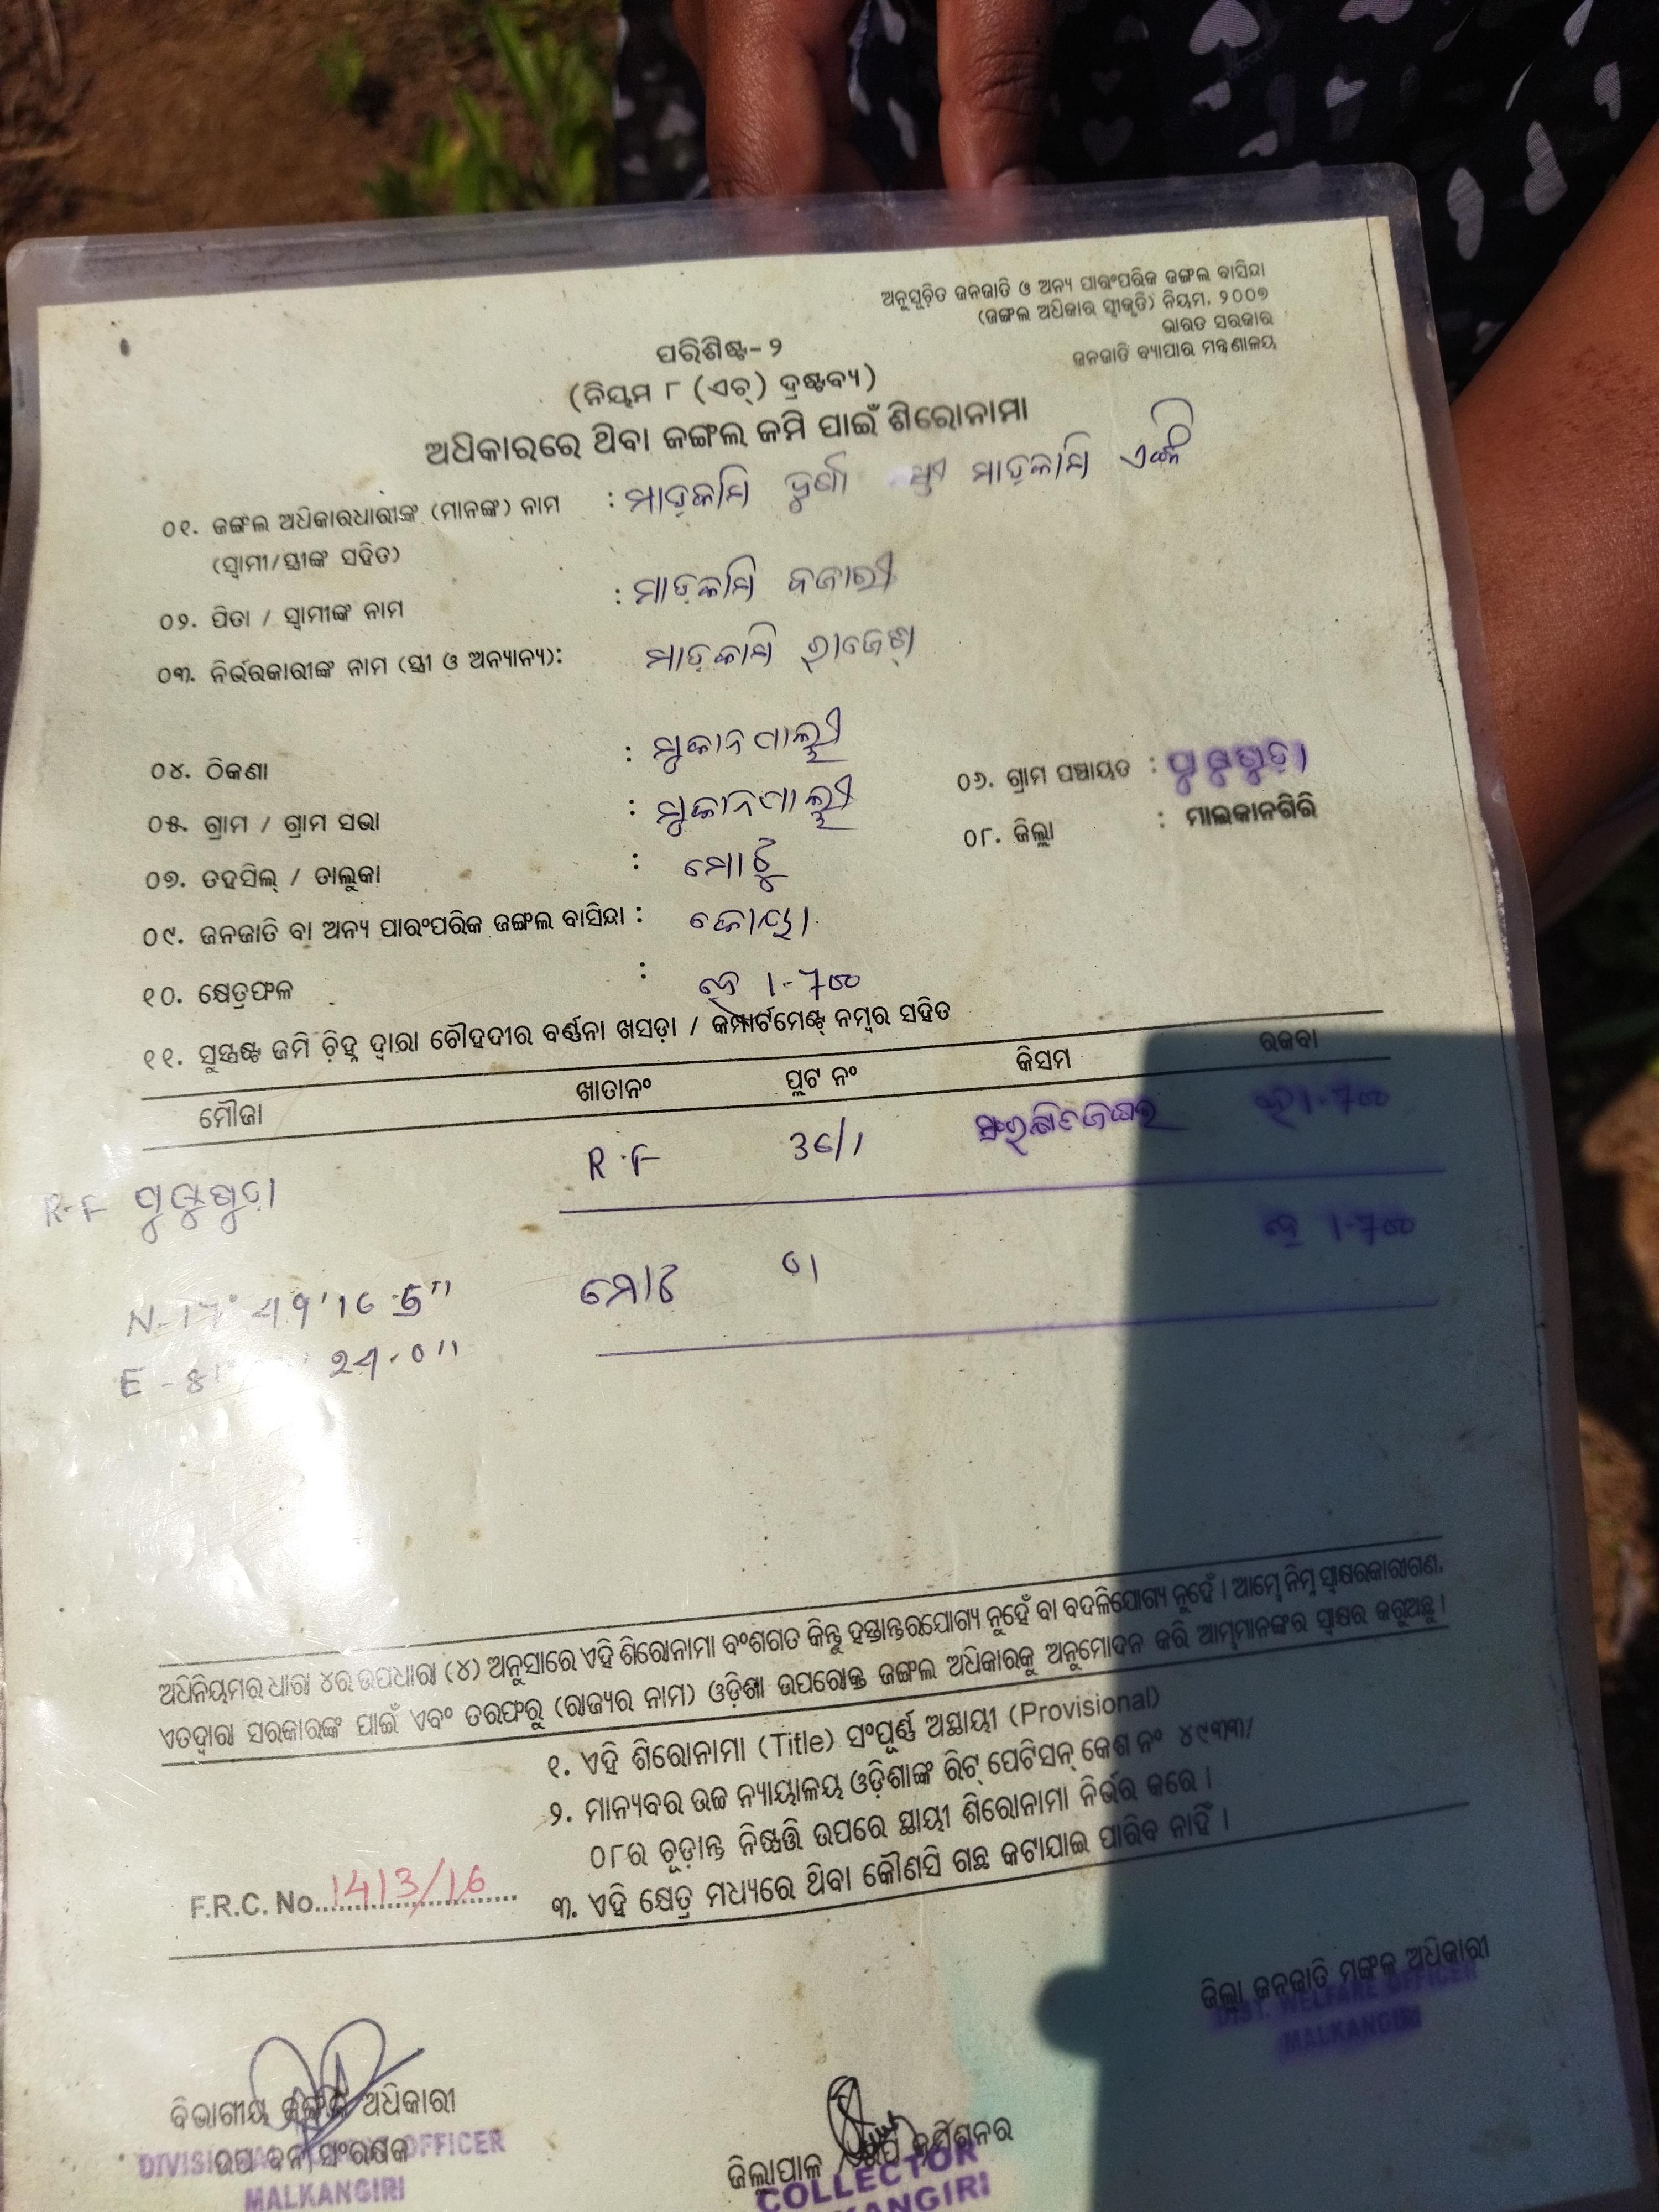 ଅନୁସୂଚିତ ଜନଜାତି ଓ ଅନ୍ୟ ପାରଂପରିକ ଜଙ୍ଗଲ ବାସିନ୍ଦା
(ଜଙ୍ଗଲ ଅଧିକାର ସ୍ୱୀକୃତି) ନିୟମ, ୨୦୦୭
ଭାରତ ସରକାର
ଜନଜାତି ବ୍ୟାପାର ମନ୍ତ୍ରଣାଳୟ
ପରିଶିଷ୍ଟ-୨
(ନିୟମ ୮ (ଏଚ୍) ଦ୍ରଷ୍ଟବ୍ୟ)
ଅଧିକାରରେ ଥିବା ଜଙ୍ଗଲ ଜମି ପାଇଁ ଶିରୋନାମା
୦୧. ଜଙ୍ଗଲ ଅଧିକାରଧାରୀଙ୍କ (ମାନଙ୍କ) ନାମ : ମାଡ଼କାମି ମାଡ଼କାମି
(ସ୍ୱାମୀ/ସ୍ତ୍ରୀଙ୍କ ସହିତ)
୦୨. ପିତା / ସ୍ୱାମୀଙ୍କ ନାମ : ମାଡ଼କାମି
୦୩. ନିର୍ଭରକାରୀଙ୍କ ନାମ (ସ୍ତ୍ରୀ ଓ ଅନ୍ୟାନ୍ୟ): ମାଡ଼କାମି
୦୪. ଠିକଣା :
୦୫. ଗ୍ରାମ / ଗ୍ରାମ ସଭା : ୦୬. ଗ୍ରାମ ପଞ୍ଚାୟତ :
୦୭. ତହସିଲ୍ / ତାଲୁକା : ମୋଟୁ ୦୮. ଜିଲ୍ଲା : ମାଲକାନଗିରି
୦୯. ଜନଜାତି ବା ଅନ୍ୟ ପାରଂପରିକ ଜଙ୍ଗଲ ବାସିନ୍ଦା : କୋୟା
୧୦. କ୍ଷେତ୍ରଫଳ : ହେ 1-700
୧୧. ସୁସ୍ପଷ୍ଟ ଜମି ଚିହ୍ନ ଦ୍ୱାରା ଚୌହଦୀର ବର୍ଣ୍ଣନା ଖସଡ଼ା / କମ୍ପାର୍ଟମେଣ୍ଟ୍ ନମ୍ବର ସହିତ
ମୌଜା ଖାତାନଂ ପ୍ଲଟ ନଂ କିସମ ରକବା
R-F R.F 36/1 ହେ 1-700
ମୋଟ ହେ 1-700
24.0"
ଅଧିନିୟମର ଧାରା ୪ର ଉପଧାରା (୪) ଅନୁସାରେ ଏହି ଶିରୋନାମା ବଂଶଗତ କିନ୍ତୁ ହସ୍ତାନ୍ତରଯୋଗ୍ୟ ନୁହେଁ ବା ବଦଳିଯୋଗ୍ୟ ନୁହେଁ । ଆମ୍ଭେ ନିମ୍ନ ସ୍ୱାକ୍ଷରକାରୀଗଣ,
ଏତଦ୍ୱାରା ସରକାରଙ୍କ ପାଇଁ ଏବଂ ତରଫରୁ (ରାଜ୍ୟର ନାମ) ଓଡ଼ିଶା ଉପରୋକ୍ତ ଜଙ୍ଗଲ ଅଧିକାରକୁ ଅନୁମୋଦନ କରି ଆମ୍ଭମାନଙ୍କର ସ୍ୱାକ୍ଷର କରୁଅଛୁ ।
୧. ଏହି ଶିରୋନାମା (Title) ସଂପୂର୍ଣ୍ଣ ଅସ୍ଥାୟୀ (Provisional)
୨. ମାନ୍ୟବର ଉଚ୍ଚ ନ୍ୟାୟାଳୟ ଓଡ଼ିଶାଙ୍କ ରିଟ୍ ପେଟିସନ୍ କେଶ ନଂ ୪୯୩୩/
୦୮ର ଚୂଡ଼ାନ୍ତ ନିଷ୍ପତ୍ତି ଉପରେ ସ୍ଥାୟୀ ଶିରୋନାମା ନିର୍ଭର କରେ ।
୩. ଏହି କ୍ଷେତ୍ର ମଧ୍ୟରେ ଥିବା କୌଣସି ଗଛ କଟାଯାଇ ପାରିବ ନାହିଁ ।
F.R.C. No. 1413/16
ଜିଲ୍ଲା ଜନଜାତି ମଙ୍ଗଳ ଅଧିକାରୀ
DIST. WELFARE OFFICER
MALKANGIRI
ବିଭାଗୀୟ ଜଙ୍ଗଲ ଅଧିକାରୀ
ଉପ ବନ ସଂରକ୍ଷକ
OFFICER
MALKANGIRI
ଜିଲ୍ଲାପାଳ / ଉପ କମିଶନର
COLLECTOR